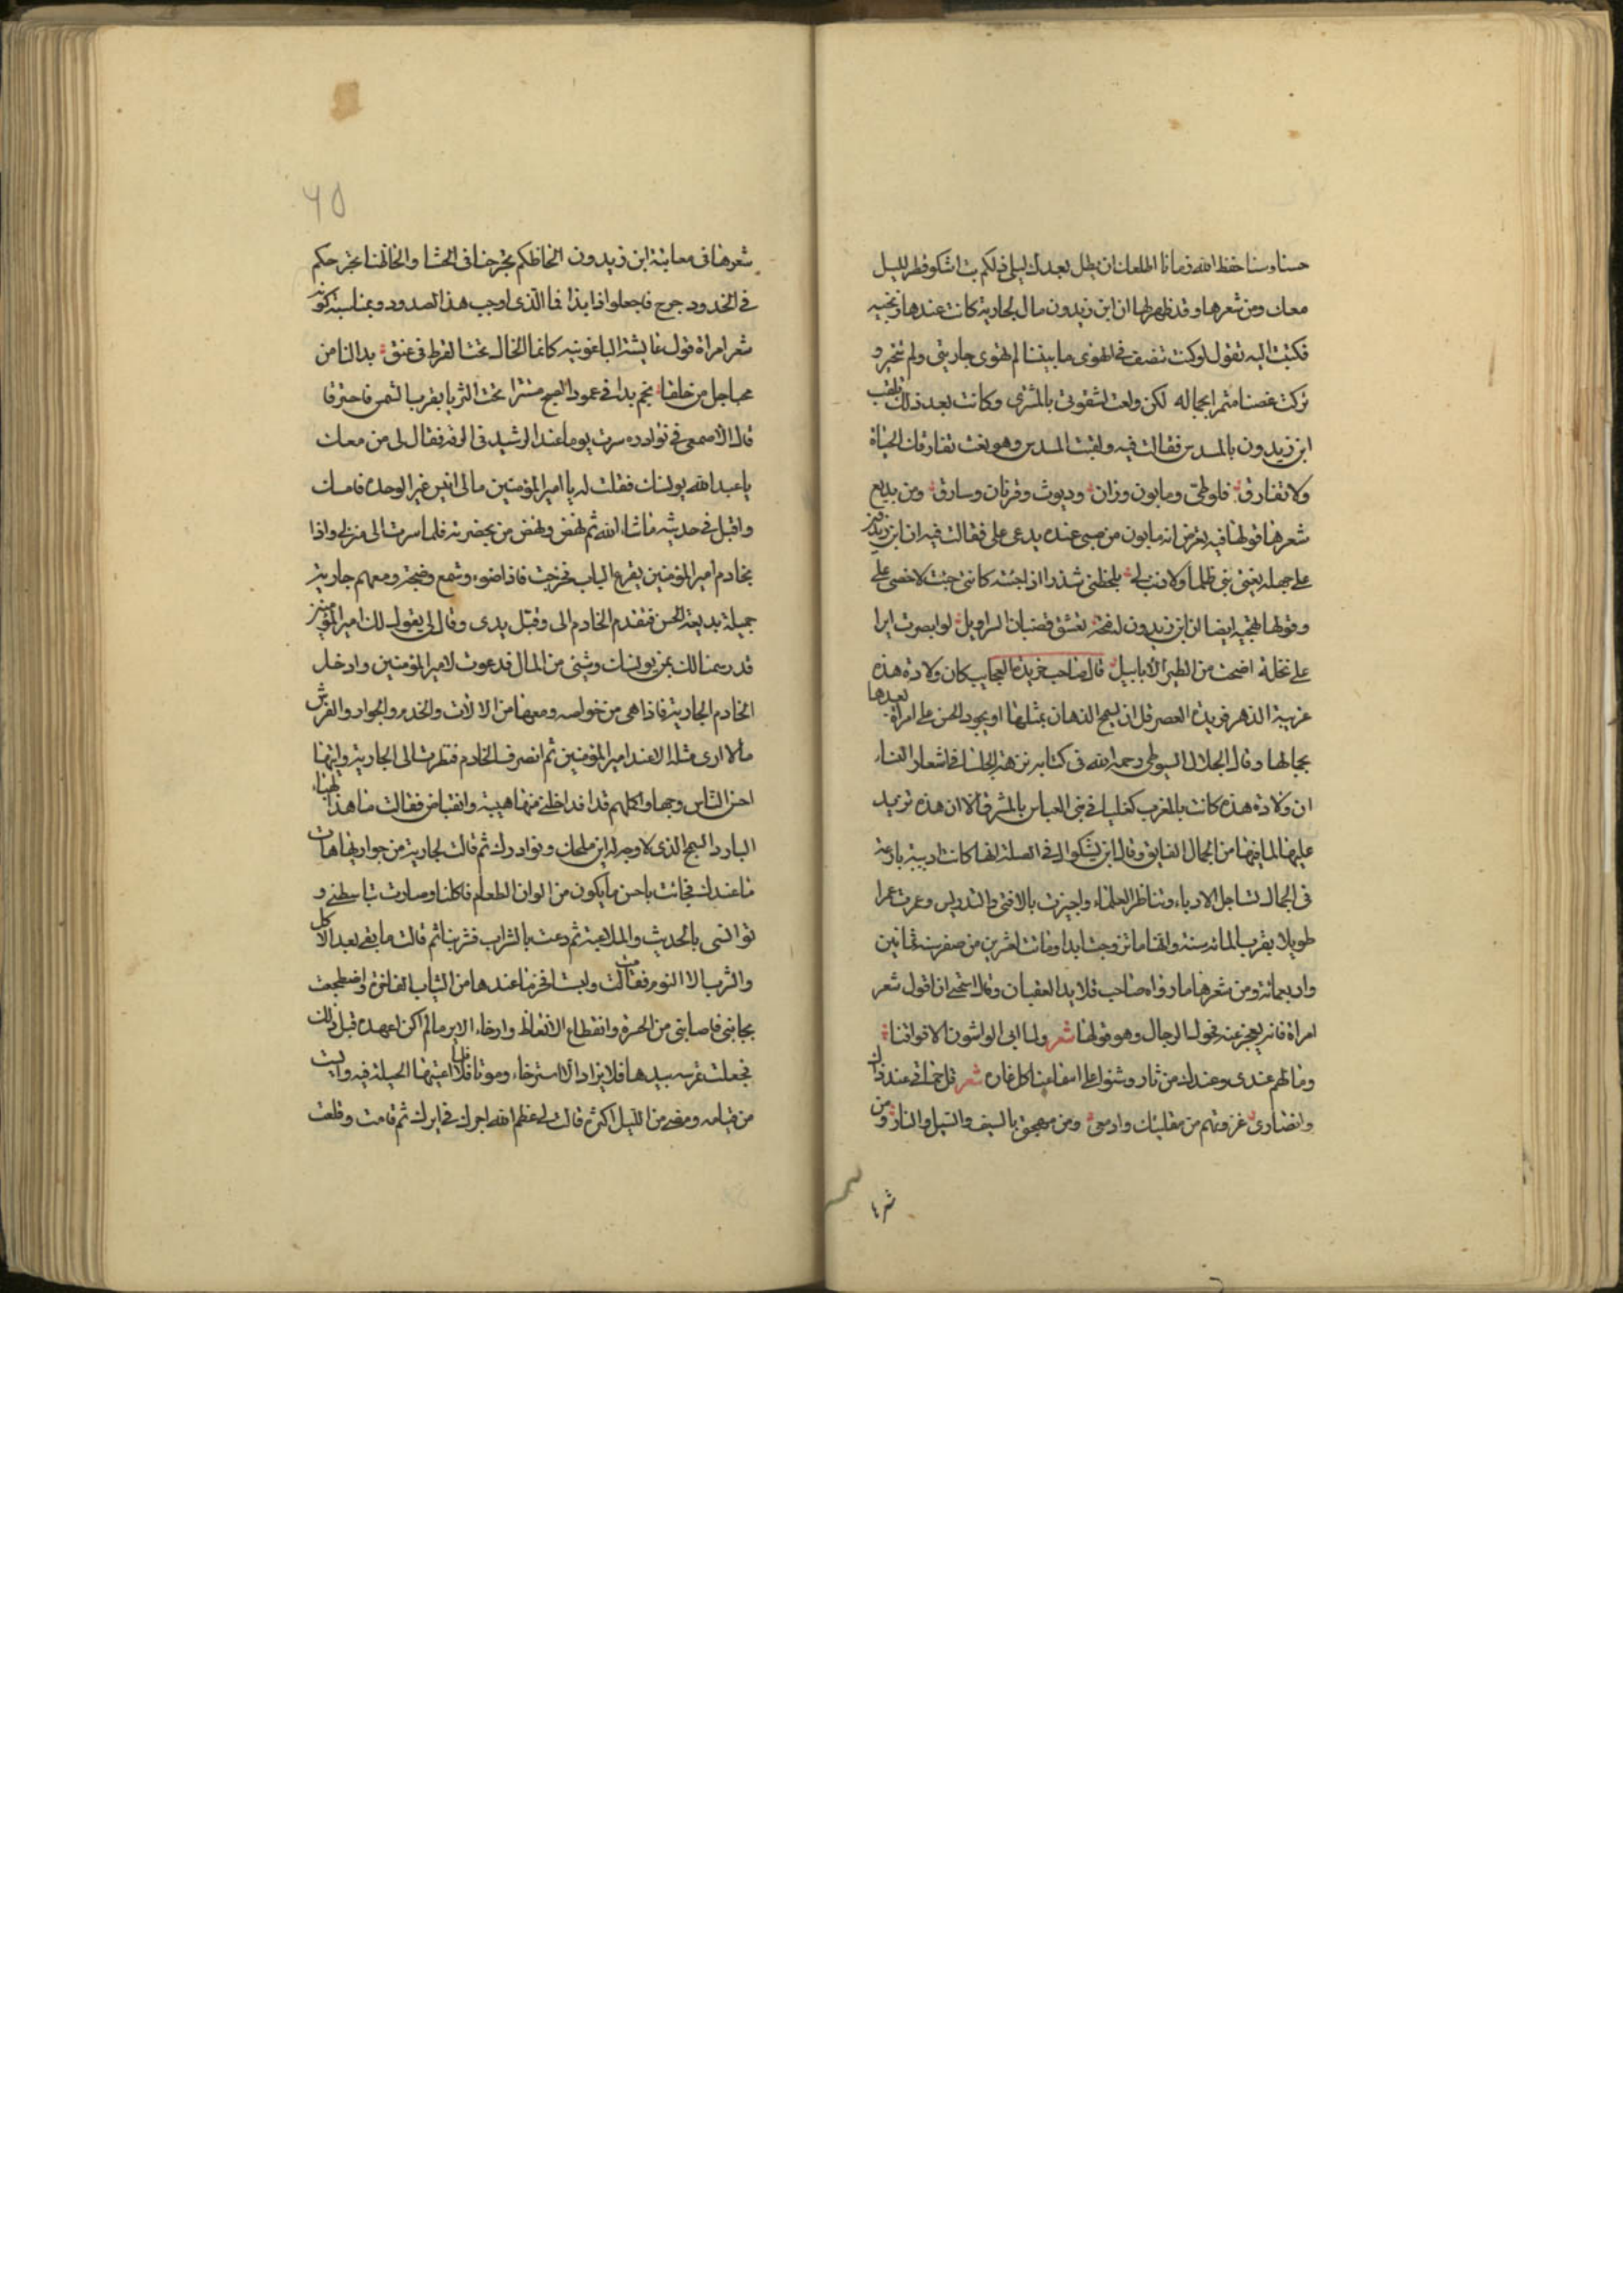 حسنا وسنا حفظ الله زمانا اطلعك ان يطل بعدك ليلى فلكم بت اشكو قطر الليل
معك ومن شعرها وقد ظهر لها ان ابن زيدون مال لجارية كانت عندها وتحبه
فكتبت اليه تقول لو كنت تنصف في الهوى ما بيننا لم تهوى جاريتي ولم تتخير و
تركت غصنا مثمرا بجماله لكن ولعت لشقوتي بالمشتري وكانت بعد ذلك تلقب
ابن زيدون بالمسدس فقالت فيه ولقبت المسدس وهو نعت تفارقك الحياة
ولا تفارق فلوطي ومابون وزان وديوث وقرنان وسارق ومن بديع
شعرها قولها فيه تعرض انه مابون من صبي عنده يدعى علي فقالت فيه ان ابن زيدون
على جهله يغتبني ظلما ولا ذنب لي يلحظني شذرا اذ اجئته كانني جئت لاخصي علي
وقولها تهجيه ايضا ان ابن زيدون له فقحة تعشق قضبان السراويل لو ابصرت ايرا
على نخلة اضحت من الطير الابابيل قال صاحب خريدة العجايب كان ولادة هذه
غريبة الدهر فريدة العصر قل ان يسمح الزمان بمثلها او يجود الحسن على امراة بعدها
بجمالها وقال الجلال السيوطي رحمه الله في كتابه نزهة الجلساء في اشعار النساء
ان ولادة هذه كانت بالمغرب كعليا في بني العباس بالمشرق الا ان هذه تزيد
عليها لما فيها من الجمال الفايق وقال ابن بشكوال في الصلة لها كانت اديبة بارعة
في الجمال تساجل الادباء وتناظر العلماء واجيزت بالافتى والتدريس وعمرت عمرا
طويلا يقرب المائة سنة وانها ما تزوجت ابدا وماتت لعشرين من صفر سنة ثمانين
واربعمائة ومن شعرها ما رواه صاحب قلايد العقيان وقال استحي ان اقول شعر
امراة فانه يعجز عنه فحول الرجال وهو قولها شعر ولما ابى الواشون الا فراقنا
وما لهم عندي وعندك من ثار وشنوا على اسماعنا كل غارة شعر قل حماتي عند ذاك
وانصاري غزوتهم من مقلتيك وادمعي ومن مهجتي بالسيف والسيل والنار ومن
شعر
٦٥
شعرها في معاتبة ابن زيدون الحاظكم تجرحنا في الحشا والحاظنا تجرحكم
في الخدود جرح فاجعلوا ذا بذا فما الذي اوجب هذا الصدود وبمناسبة كونه
شعر امراة قول عايشة الباعونية كانما الخال تحت القرط في عنق بدا لنا من
محيا جل من خلقا نجم بدا في عمود الصبح مستترا تحت الثريا بقرب الشمس فاحترقا
قال الاصمعي في نوادره سرت يوما عند الرشيد في الرقة فقال لي من معك
يا عبد الله يونسك فقلت له يا امير المؤمنين مالي انيس غير الوحدة فامسك
واقبل في حديثه ما شاء الله ثم نهض ونهض من بحضرته فلما سرت الى منزلي واذا
بخادم امير المؤمنين يقرع الباب فخرجت فاذا ضوء وشمع وضجة ومعهم جارية
جميلة بديعة الحسن فتقدم الخادم الي وقبل يدي وقال لي يقول لك امير المؤمنين
قد رسمنا لك بمن يونسك وشيء من المال فدعوت لامير المؤمنين وادخل
الخادم الجارية فاذا هي من خواصه ومعها من الالات والخدم والجوار والفرش
ما لا ارى مثله الا عند امير المؤمنين ثم انصرف الخادم فنظرت الى الجارية وانها
احسن الناس وجها واكملهم قدا فداخلني منها هيبة وانقباض فقالت ما هذا الحياء
البارد السمج الذي لا وجه له اين ملحك ونوادرك ثم قالت لجارية من جواريها هات
ما عندك فجائت باحسن ما يكون من الوان الطعام فاكلنا وصارت تباسطني و
توانسني بالحديث والملاعبة ثم دعت بالشراب فشربنا ثم قالت ما بقي بعد الاكل
والشرب الا النوم فقامت ولبست افخر ما عندها من الثياب الفاخرة واضطجعت
بجانبي فاصابني من الحسرة وانقطاع الانعاظ وارخاء الاير ما لم اكن اعهده قبل ذلك
فجعلت تمرسه بيدها فلا يزداد الا استرخاء وموتا فلما اعيتها الحيلة فيه وايست
من قيامه ومضى من الليل اكثره قالت لي عظم الله اجرك في ايرك ثم قامت وقلعت